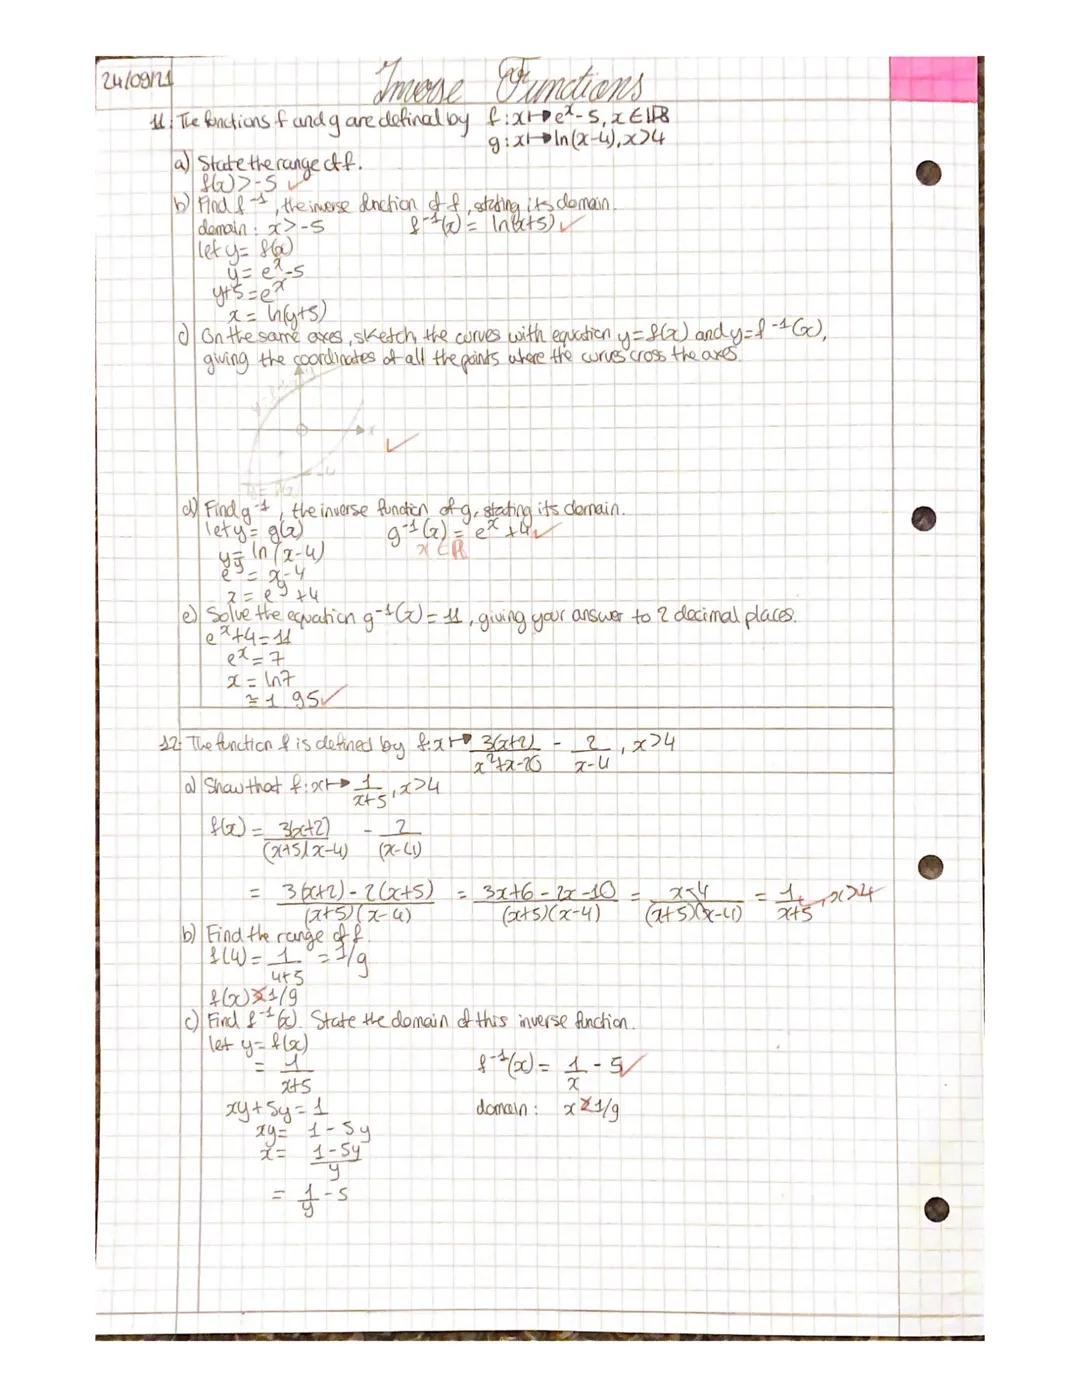 24/09/21
Inverse Functions
11. The functions f and g are defined by f:x↦e^x-5, x∈ℝ
g:x↦ln(x-4), x>4
a) State the range of f.
f(x)>-5 ✓
b) Find f^-1, the inverse function of f, stating its domain.
domain: x>-5 f^-1(x) = ln(x+5) ✓
let y = f(x)
y = e^x-5
y+5 = e^x
x = ln(y+5)
c) On the same axes, sketch the curves with equation y=f(x) and y=f^-1(x),
giving the coordinates of all the points where the curves cross the axes.
x
-4
✓
d) Find g^-1, the inverse function of g, stating its domain.
let y = g(x) g^-1(x) = e^x+4 ✓
y = ln(x-4) x∈ℝ
e^y = x-4
x = e^y+4
e) Solve the equation g^-1(x) = 11, giving your answer to 2 decimal places.
e^x+4 = 11
e^x = 7
x = ln7
≅ 1.95 ✓
12. The function f is defined by f:x↦ 3(x+2)/(x²+x-20) - 2/(x-4), x>4
a) Show that f:x↦ 1/(x+5), x>4
f(x) = 3(x+2)/((x+5)(x-4)) - 2/(x-4)
= (3(x+2)-2(x+5))/((x+5)(x-4)) = (3x+6-2x-10)/((x+5)(x-4)) = (x-4)/((x+5)(x-4)) = 1/(x+5), x>4
b) Find the range of f.
f(4) = 1/(4+5) = 1/9
f(x) 1/9
c) Find f^-1(x). State the domain of this inverse function.
let y = f(x)
= 1/(x+5) f^-1(x) = 1/x - 5 ✓
xy+5y = 1 domain: x 1/9
xy = 1-5y
x = (1-5y)/y
= 1/y - 5